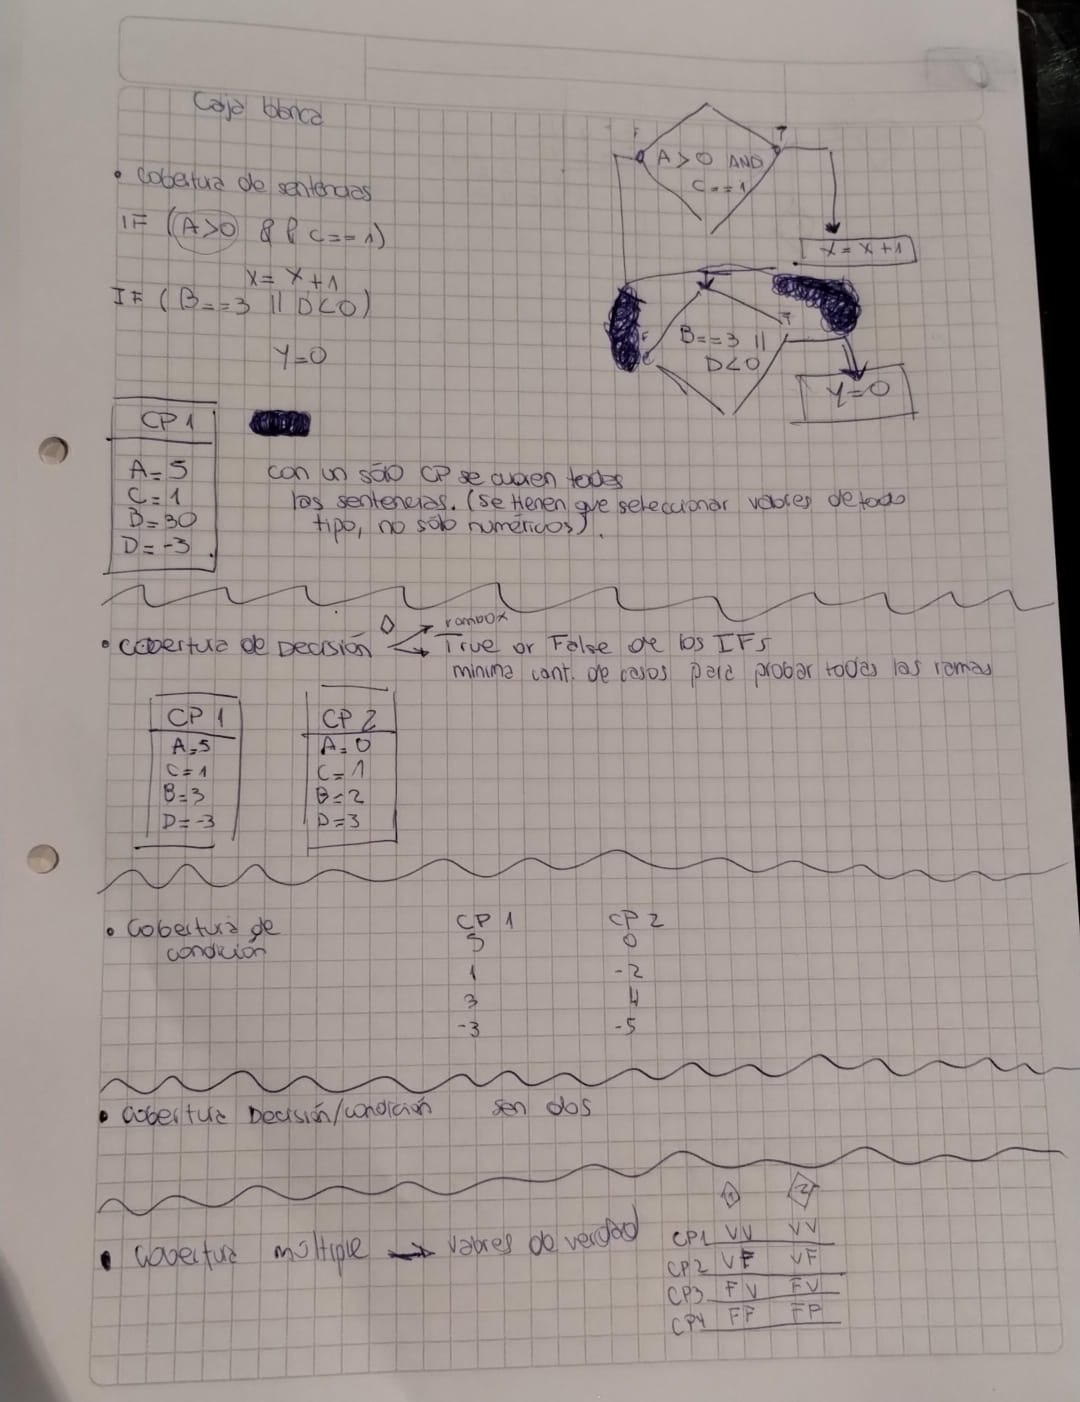 Caja blanca
• Cobertura de sentencias
IF (A>0 && C==1)
X= X+1
IF (B==3 || D<0)
Y=0
F
T
A>0 AND
C==1
X=X+1
F
T
B==3 ||
D<0
Y=0
CP1
A=5
C=1
B=30
D=-3
con un sólo CP se cubren todas
las sentencias. (se tienen que seleccionar valores de todo
tipo, no sólo numéricos).
• Cobertura de Decisión
rombox
True or False de los IFs
minima cant. de casos para probar todas las ramas
CP 1
A=5
C=1
B=3
D=-3
CP 2
A=0
C=1
B=2
D=3
• Cobertura de
condición
CP 1
5
1
3
-3
CP 2
0
-2
4
-5
• Cobertura Decisión/condición son dos
• Cobertura múltiple → valores de verdad
1 2
CP1 VV VV
CP2 VF VF
CP3 FV FV
CP4 FF FF